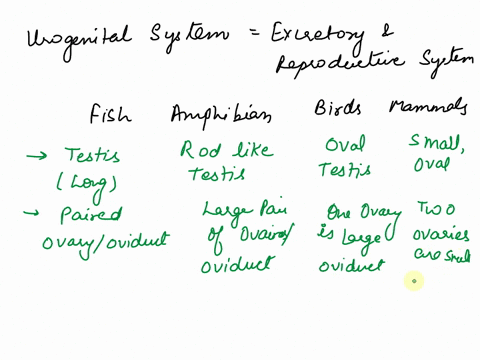 Urogenital System = Excretory &
Reproductive System
Fish Amphibian Birds Mammals
→ Testis (Long) Rod like Testis Oval Testis Small, Oval
→ Paired ovary/oviduct Large Pair of Ovaires/ oviduct One Ovary is Large oviduct Two ovaries are small